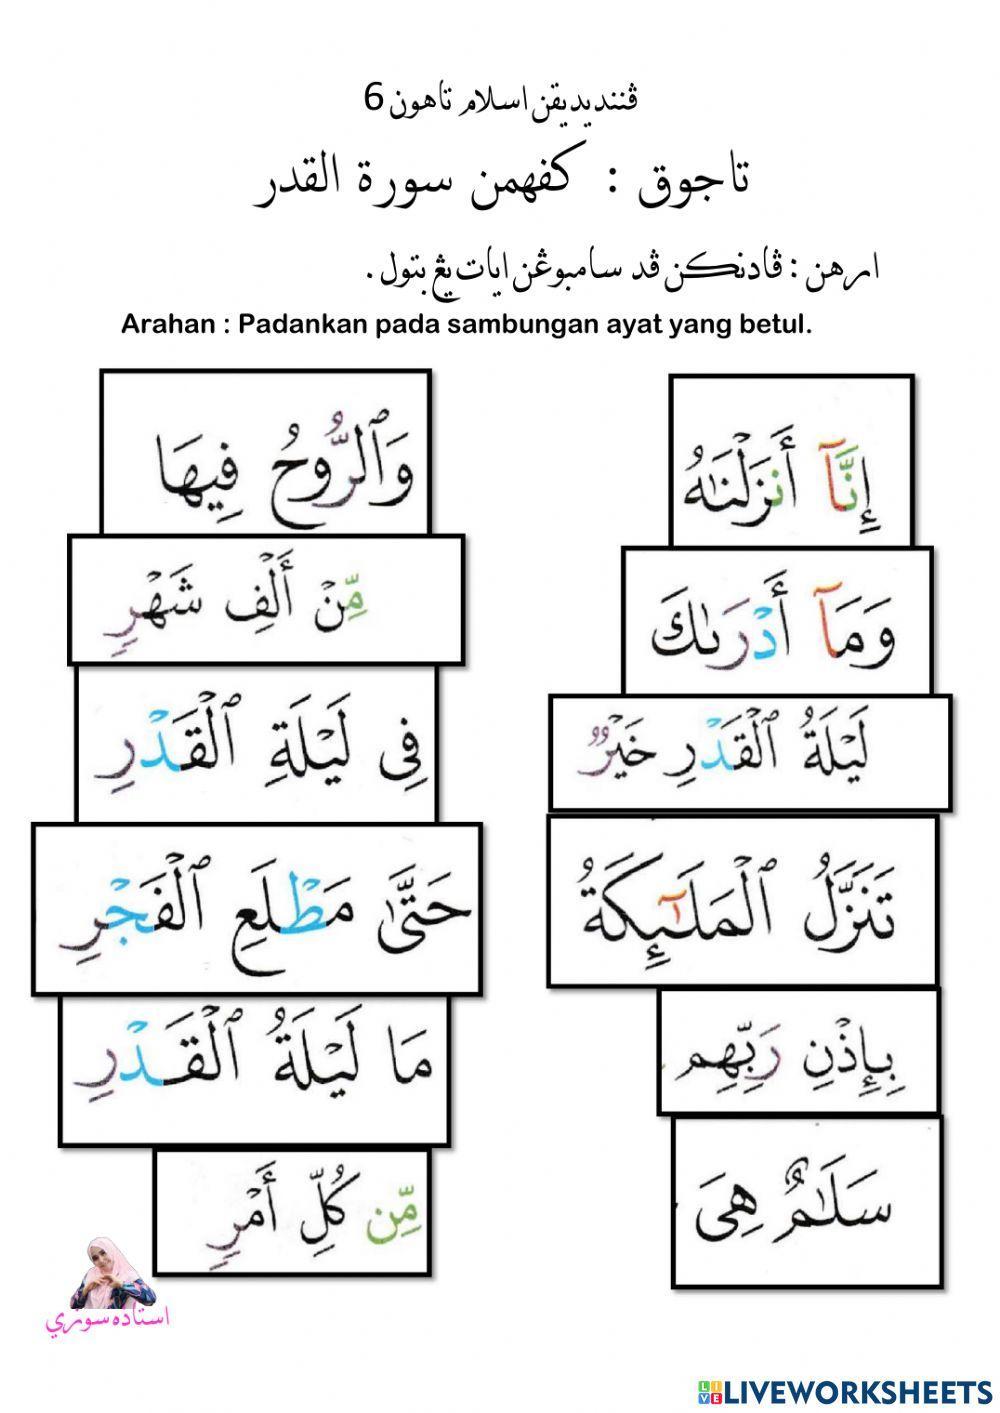 ڤنديديقن اسلام تاهون 6
تاجوق : كفهمن سورة القدر
ارهن : ڤادنكن ڤد سامبوڠن ايات يڠ بتول .
Arahan : Padankan pada sambungan ayat yang betul.
إِنَّآ أَنزَلْنَٰهُ
وَمَآ أَدْرَىٰكَ
لَيْلَةُ ٱلْقَدْرِ خَيْرٌ
تَنَزَّلُ ٱلْمَلَٰٓئِكَةُ
بِإِذْنِ رَبِّهِم
سَلَٰمٌ هِىَ
وَٱلرُّوحُ فِيهَا
مِّنْ أَلْفِ شَهْرٍ
فِى لَيْلَةِ ٱلْقَدْرِ
حَتَّىٰ مَطْلَعِ ٱلْفَجْرِ
مَا لَيْلَةُ ٱلْقَدْرِ
مِّن كُلِّ أَمْرٍ
استاذه سوزي
LIVEWORKSHEETS